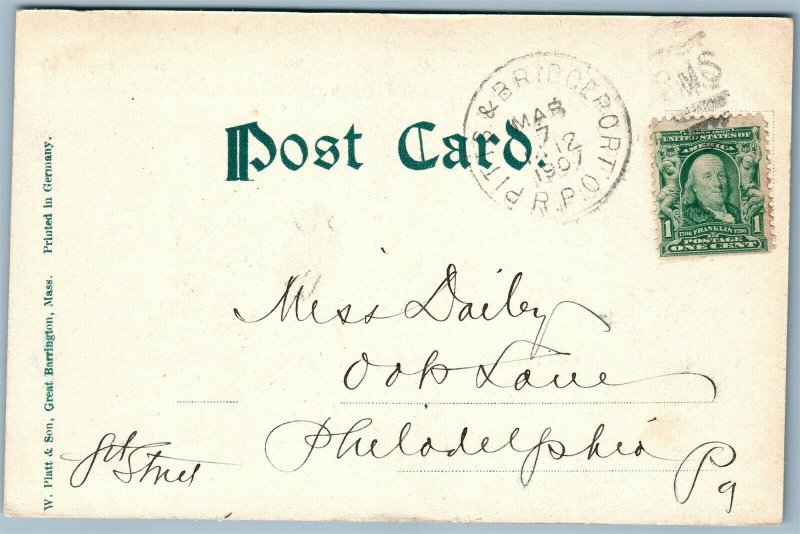 Post Card.
PITTS & BRIDGEPORT
R.P.O.
MAR
7
12
1907
RMS
UNITED STATES OF
AMERICA
1 1
1706 FRANKLIN 1790
POSTAGE ONE CENT
Miss Daily
Oak Lane
Philadelphia
Pa
8th Street
W. Platt & Son, Great Barrington, Mass. Printed in Germany.